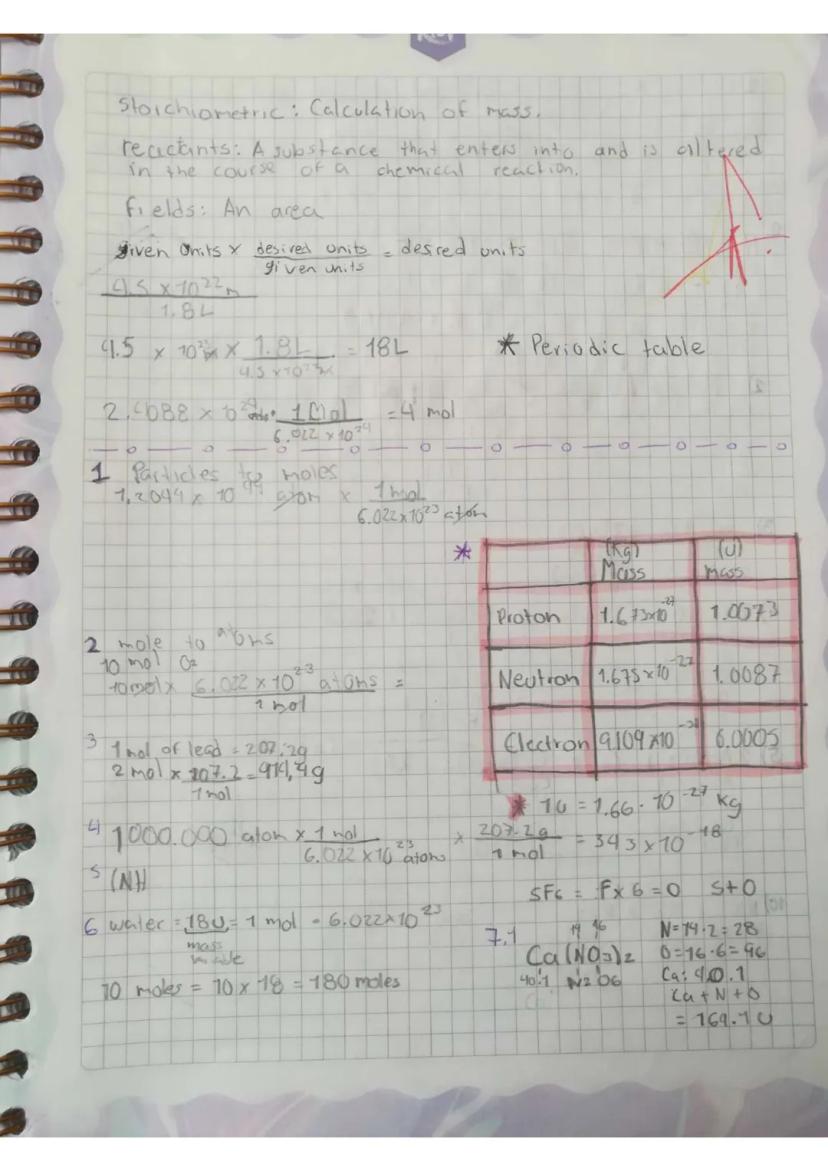 Stoichiometric: Calculation of mass.
reactants: A substance that enters into and is altered
in the course of a chemical reaction.
fields: An area
given units x desired units / given units = desred units
4.5 x 10²² m / 1.8L
4.5 x 10²² x 1.8L / 4.5 x 10²² = 18L
* Periodic table
2.4088 x 10²⁴ · 1 Mol / 6.022 x 10²⁴ = 4 mol
1 Particles to moles
1,2044 x 10 atom x 1 mol / 6.022x10²³ atom
*
(Kg) Mass (U) mass
Proton 1.673x10⁻²⁷ 1.0073
Neutron 1.675x10⁻²⁷ 1.0087
Electron 9.109x10⁻³¹ 6.0005
* 1U = 1.66 · 10⁻²⁷ kg
2 mole to atoms
10 mol O₂
10 mol x 6.022 x 10²³ atoms / 1 mol =
3 1 mol of lead = 207.2g
2 mol x 207.2 / 1 mol = 414,4g
4 1000.000 atom x 1 mol / 6.022 x 10²³ atoms x 207.2g / 1 mol = 343 x 10⁻¹⁸
5 (NH
SF6 = F x 6 = 0 S+O
6 water = 18U = 1 mol = 6.022x10²³
mass
10 moles = 10 x 18 = 180 moles
7.1
14 16
Ca(NO₃)₂
40.1 N2 O6
N=14·2=28
O=16·6=96
Ca: 40.1
Ca + N + O
= 164.1 U